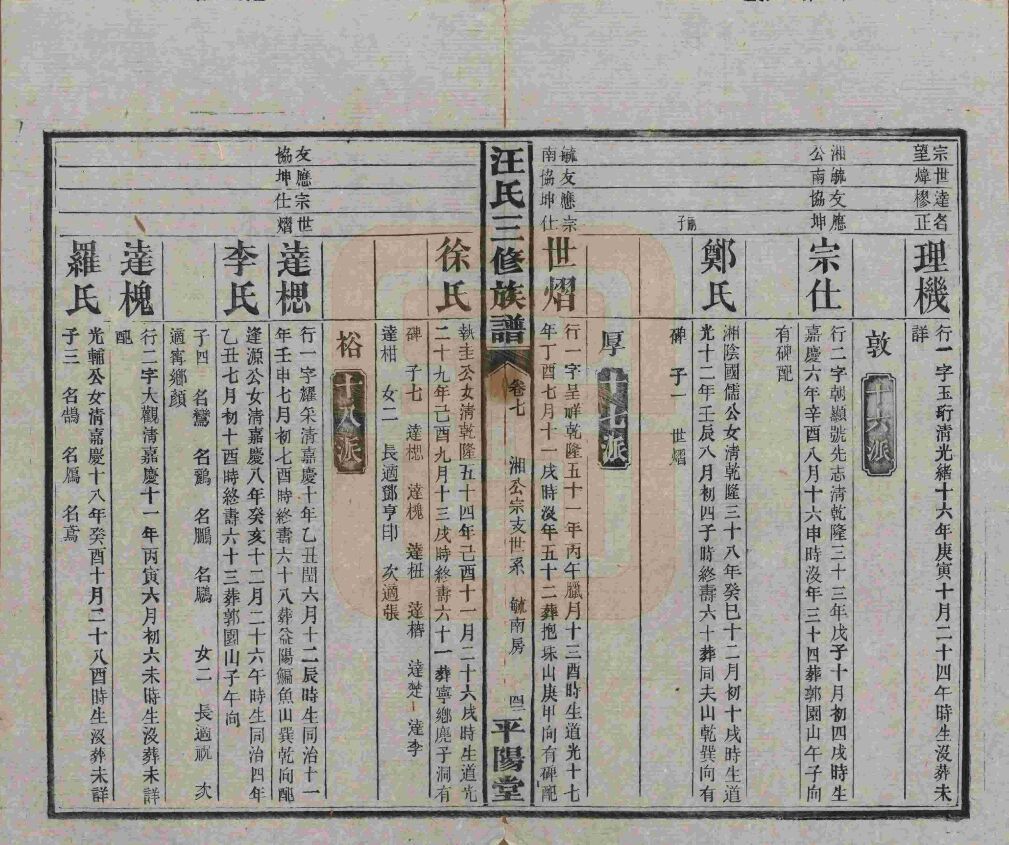 宗世達名
望煒樛正
理機
行一字玉珩清光緒十六年庚寅十月二十四午時生沒葬未
詳
敦 十六派
湘毓友應
公南協坤
宗仕
行二字朝顯號先志清乾隆三十三年戊子十月初四戌時生
嘉慶六年辛酉八月十六申時沒年三十四葬郭園山午子向
有碑配
鄭氏
湘陰國儒公女清乾隆三十八年癸巳十二月初十戌時生道
光十二年壬辰八月初四子時終壽六十葬同夫山乾巽向有
碑 子一 世熠
厚 十七派
毓友應宗
南協坤仕
世熠
行一字呈祥乾隆五十一年丙午臘月十三酉時生道光十七
年丁酉七月十一戌時沒年五十二葬抱珠山庚甲向有碑配
汪氏三修族譜 卷七 湘公宗支世系 毓南房 平陽堂
徐氏
執圭公女清乾隆五十四年己酉十一月二十六戌時生道光
二十九年己酉九月十三戌時終壽六十一葬寧鄉麂子洞有
碑 子七 達樬 達槐 達杻 達楮 達楚 達李
達柑 女二 長適鄧亨印 次適張
裕 十八派
友應宗世
協坤仕熠
達樬
行一字耀采清嘉慶十年乙丑閏六月十二辰時生同治十一
年壬申七月初七酉時終壽六十八葬益陽鯿魚山巽乾向配
李氏
逢源公女清嘉慶八年癸亥十二月二十六午時生同治四年
乙丑七月初十酉時終壽六十三葬郭園山子午向
子四 名鸞 名鷚 名鵬 名鷗 女二 長適祝 次
適寗鄉顏
達槐
行二字大觀清嘉慶十一年丙寅六月初六未時生沒葬未詳
配
羅氏
光輔公女清嘉慶十八年癸酉十月二十八酉時生沒葬未詳
子三 名鵠 名鴈 名鳶